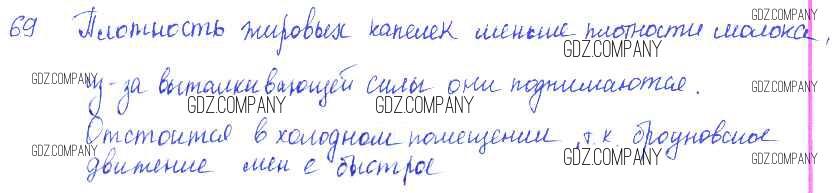 69 Плотность жировых капелек меньше плотности молока,
из-за выталкивающей силы они поднимаются.
Отстоится в холодном помещении, т.к. броуновское
движение менее быстрое
GDZ.COMPANY
GDZ.COMPANY
GDZ.COMPANY
GDZ.COMPANY
GDZ.COMPANY
GDZ.COMPANY
GDZ.COMPANY
GDZ.COMPANY
GDZ.COMPANY
GDZ.COMPANY